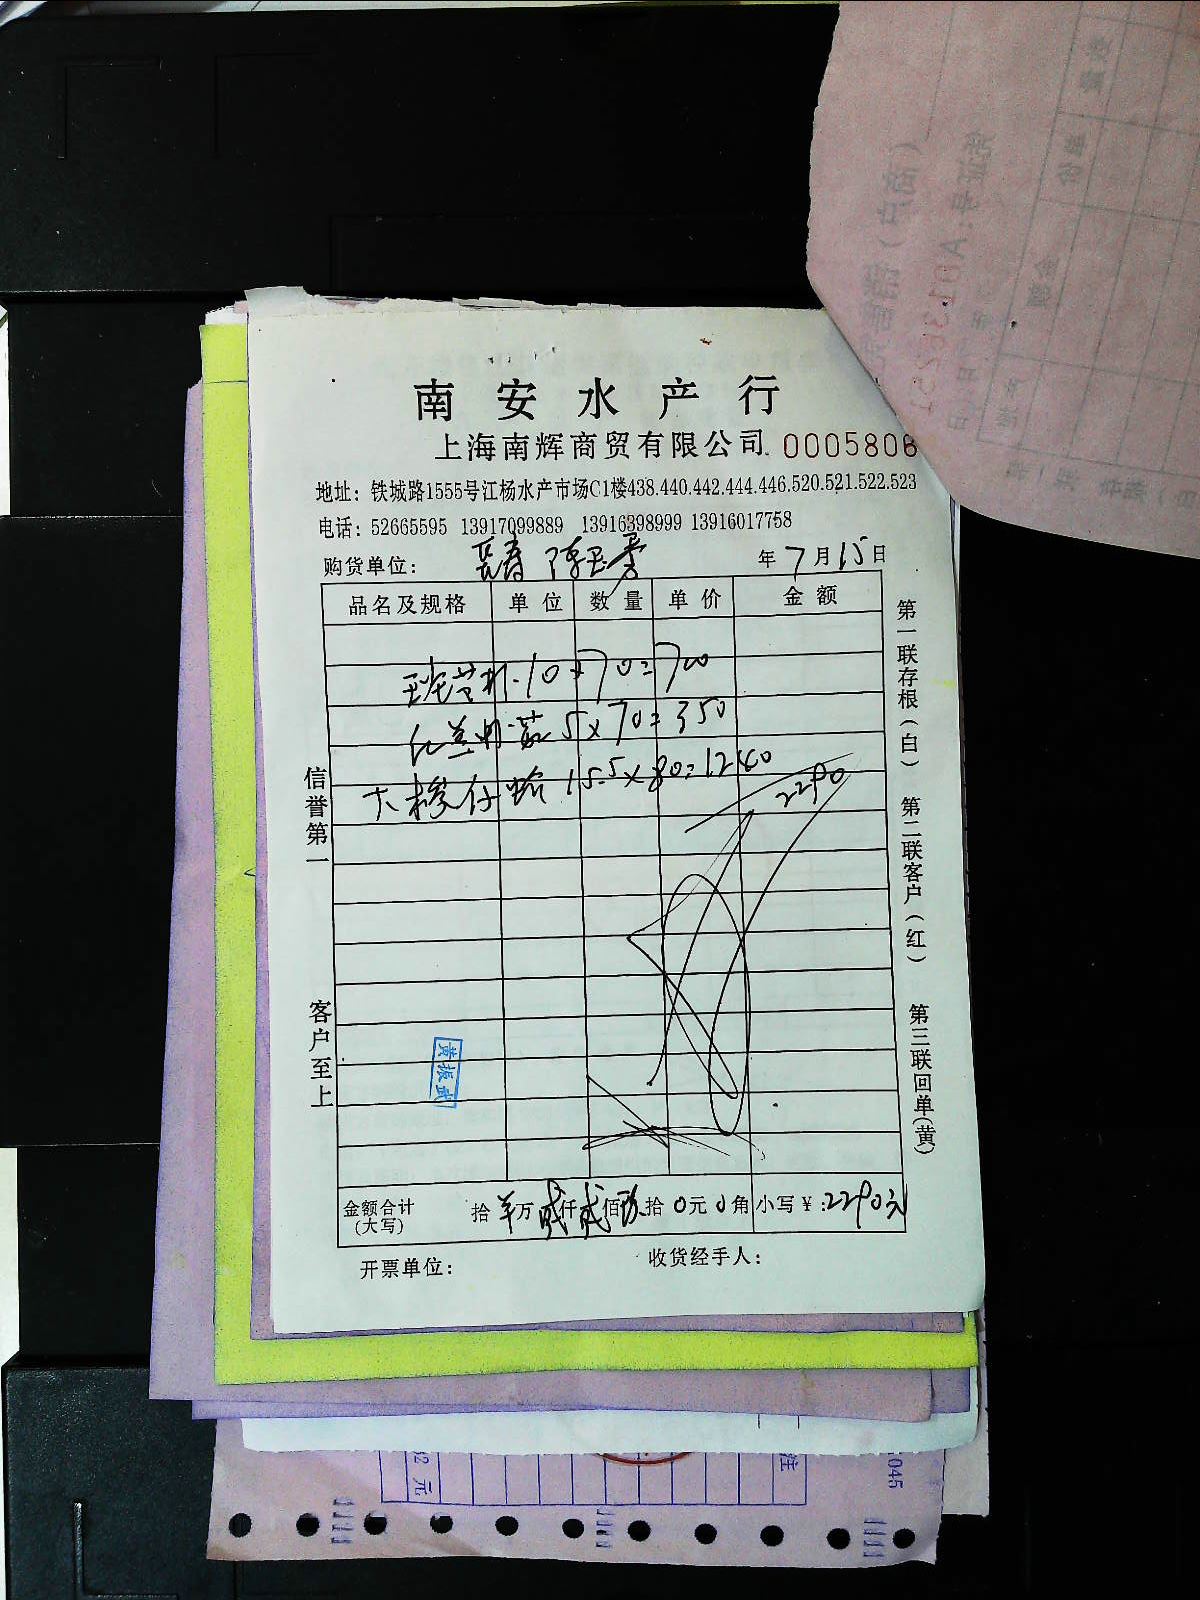 南安水产行
上海南辉商贸有限公司. 0005806
地址：铁城路1555号江杨水产市场C1楼438.440.442.444.446.520.521.522.523
电话：52665595 13917099889 13916398999 13916017758
购货单位： 长春 陈玉秀 年7月15日
品名及规格 单位 数量 单价 金额
10×70=700
5×70=350
15.5×80=1240
2290
信誉第一
客户至上
第一联存根（白）
第二联客户（红）
第三联回单（黄）
黄振武
金额合计 拾 万贰仟贰佰玖拾0元0角 小写￥:2290元
（大写）
开票单位： 收货经手人：
32元
注
1045